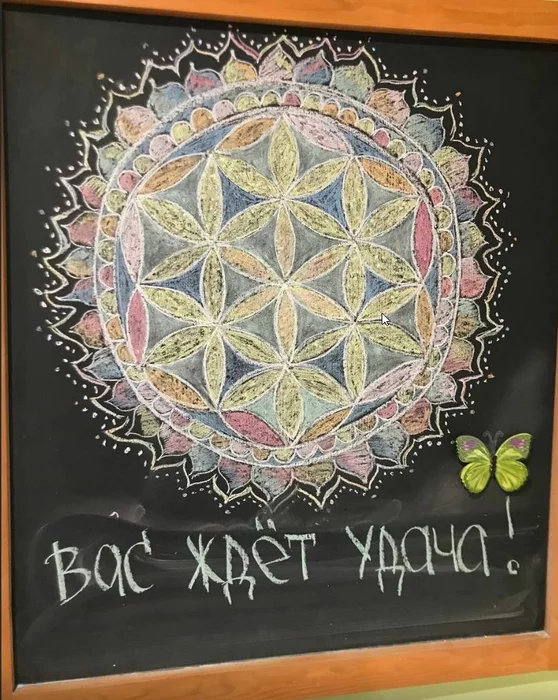 Вас ждёт удача!